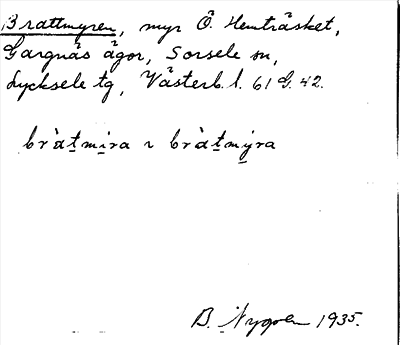 Brattmyren, myr Ö. Hemträsket,
Gargnäs ägor, Sorsele sn,
Lycksele tg, Västerb. l. 61 G. 42.
bràt̲mi̲ra ~ bràt̲mý̲ra
B. Nygren 1935.